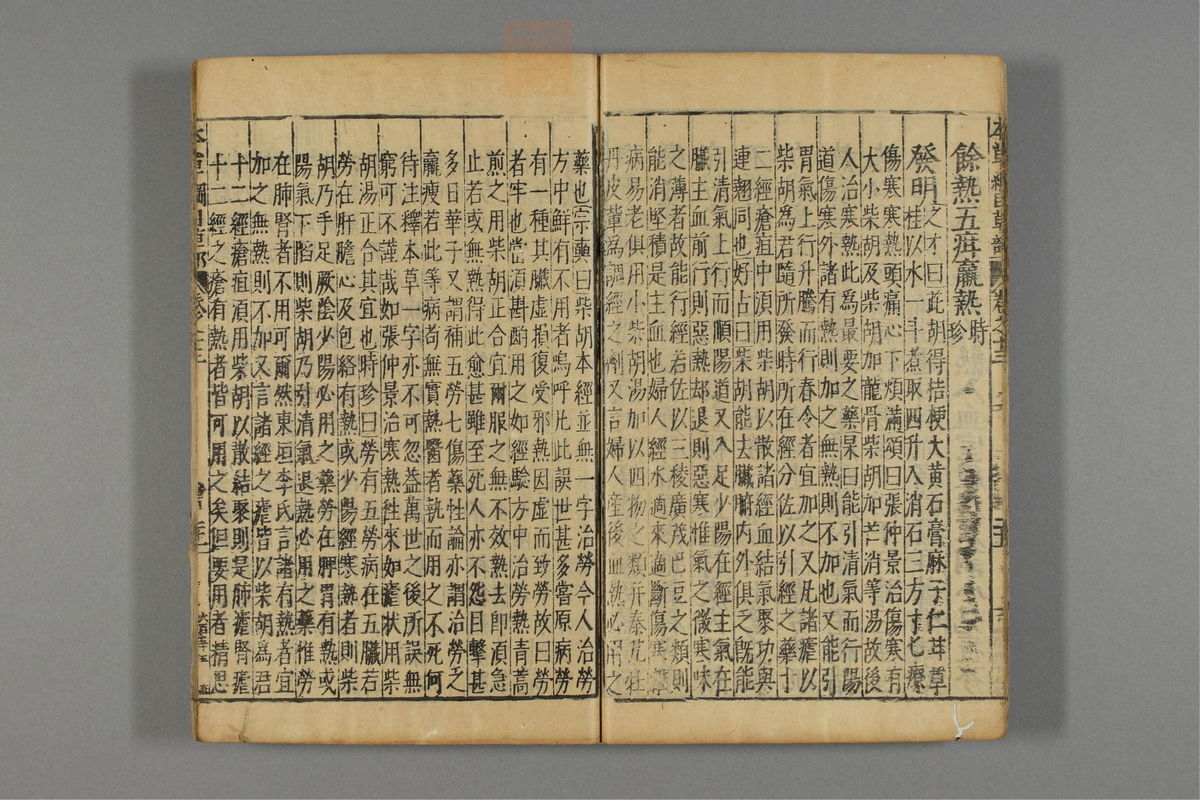 餘熱五疳羸熱時珍
發明之才曰茈胡得桔梗大黃石膏麻子仁甘草
桂以水一斗煮取四升入消石三方寸匕療
傷寒寒熱頭痛心下煩滿頌曰張仲景治傷寒有
大小柴胡及柴胡加龍骨柴胡加芒消等湯故後
人治寒熱此為最要之藥杲曰能引清氣而行陽
道傷寒外諸有熱則加之無熱則不加也又能引
胃氣上行升騰而行春令者宜加之又凡諸瘧以
柴胡為君隨所發時所在經分佐以引經之藥十
二經瘡疽中須用柴胡以散諸經血結氣聚功與
連翹同也好古曰柴胡能去臟腑內外俱乏旣能
引清氣上行而順陽道又入足少陽在經主氣在
臟主血前行則惡熱却退則惡寒惟氣之微寒味
之薄者故能行經若佐以三稜廣茂巴豆之類則
能消堅積是主血也婦人經水適來適斷傷寒雜
病易老俱用小柴胡湯加以四物之類并秦艽牡
丹皮輩為調經之劑又言婦人產後血熱必用之
藥也宗奭曰柴胡本經並無一字治勞今人治勞
方中鮮有不用者嗚呼凡此誤世甚多嘗原病勞
有一種其臟虛損復受邪熱因虛而致勞故曰勞
者牢也當須斟酌用之如經驗方中治勞熱青蒿
煎之用柴胡正合宜爾服之無不效熱去即須急
止若或無熱得此愈甚雖至死人亦不怨目擊甚
多日華子又謂補五勞七傷藥性論亦謂治勞乏
羸瘦若此等病苟無實熱醫者執而用之不死何
待注釋本草一字亦不可忽蓋萬世之後所誤無
窮可不謹哉如張仲景治寒熱徃來如瘧狀用柴
胡湯正合其宜也時珍曰勞有五勞病在五臟若
勞在肝膽心及包絡有熱或少陽經寒熱者則柴
胡乃手足厥陰少陽必用之藥勞在脾胃有熱或
陽氣下陷則柴胡乃引清氣退熱必用之藥惟勞
在肺腎者不用可爾然東垣李氏言諸有熱者宜
加之無熱則不加又言諸經之瘧皆以柴胡為君
十二經瘡疽須用柴胡以散結聚則是肺瘧腎瘧
十二經之瘡有熱者皆可用之矣但要用者精思